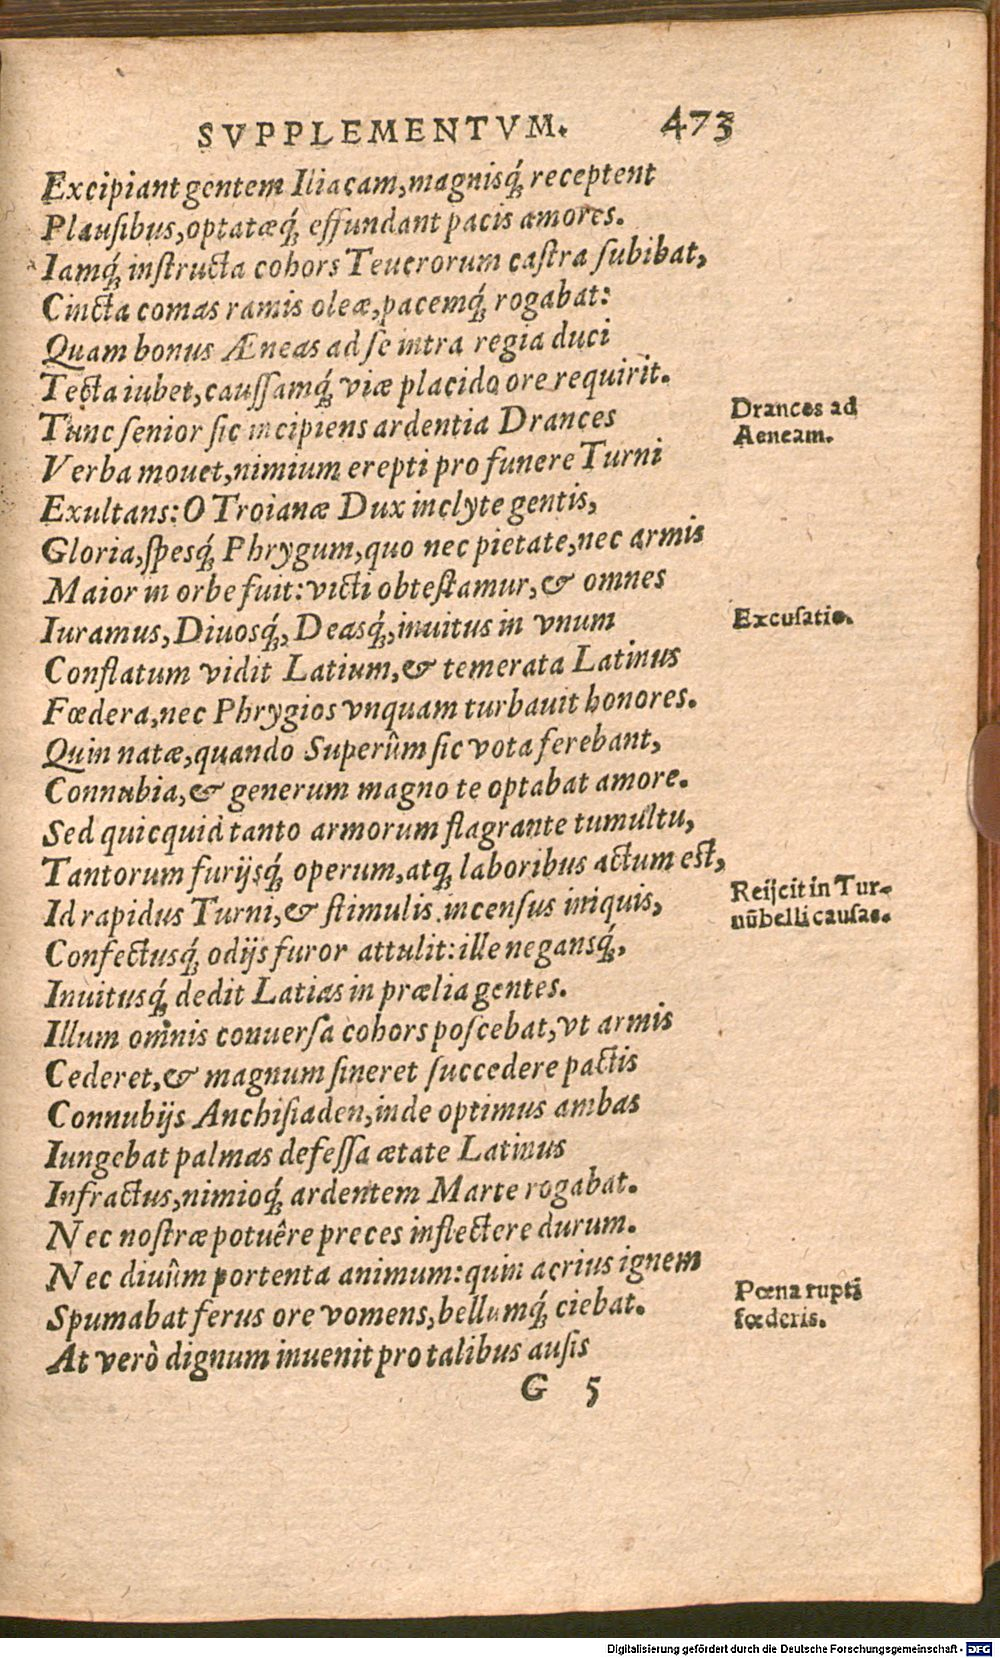 SVPPLEMENTVM. 473
Excipiant gentem Iliacam, magnisq́; receptent
Plausibus, optatæq́; effundant pacis amores.
Iamq́; instructa cohors Teucrorum castra subibat,
Cincta comas ramis oleæ, pacemq́; rogabat:
Quam bonus Æneas ad se intra regia duci
Tecta iubet, caussamq́; viæ placido ore requirit.
Tunc senior sic incipiens ardentia Drances
Drances ad
Aeneam.
Verba mouet, nimium erepti pro funere Turni
Exultans: O Troianæ Dux inclyte gentis,
Gloria, spesq́; Phrygum, quo nec pietate, nec armis
Maior in orbe fuit: victi obtestamur, & omnes
Iuramus, Diuosq́;, Deasq́;, inuitus in vnum
Excusatio.
Conflatum vidit Latium, & temerata Latinus
Fœdera, nec Phrygios vnquam turbauit honores.
Quin natæ, quando Superûm sic vota ferebant,
Connubia, & generum magno te optabat amore.
Sed quicquid tanto armorum flagrante tumultu,
Tantorum furijsq́; operum, atq; laboribus actum est,
Id rapidus Turni, & stimulis incensus iniquis,
Reijcit in Tur-
nũ belli causas.
Confectusq́; odijs furor attulit: ille negansq́;,
Inuitusq́; dedit Latias in prælia gentes.
Illum omnis conuersa cohors poscebat, vt armis
Cederet, & magnum sineret succedere pactis
Connubijs Anchisiaden, inde optimus ambas
Iungebat palmas defessa ætate Latinus
Infractus, nimioq́; ardentem Marte rogabat.
Nec nostræ potuêre preces inflectere durum.
Nec diuûm portenta animum: quin acrius ignem
Spumabat ferus ore vomens, bellumq́; ciebat.
Pœna rupti
fœderis.
At verò dignum inuenit pro talibus ausis
G 5
Digitalisierung gefördert durch die Deutsche Forschungsgemeinschaft - DFG